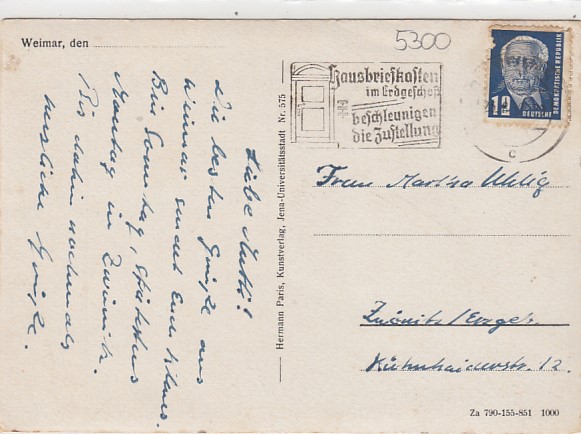 Weimar, den
5300
Hausbriefkasten
im Erdgeschoß
beschleunigen
die Zustellung
DEUTSCHE
DEMOKRATISCHE REPUBLIK
12
c
Liebe Mutti!
Die besten Grüße aus
Weimar sendet Euch
Bin Sonntag, spätestens
Montag in Zwönitz.
Bis dahin nochmals
herzliche Grüße.
Hermann Paris, Kunstverlag, Jena-Universitätsstadt Nr. 575
Frau Martha Uhlig
Zwönitz/Erzgeb.
Kühnhaiderstr. 12.
Za 790-155-851 1000